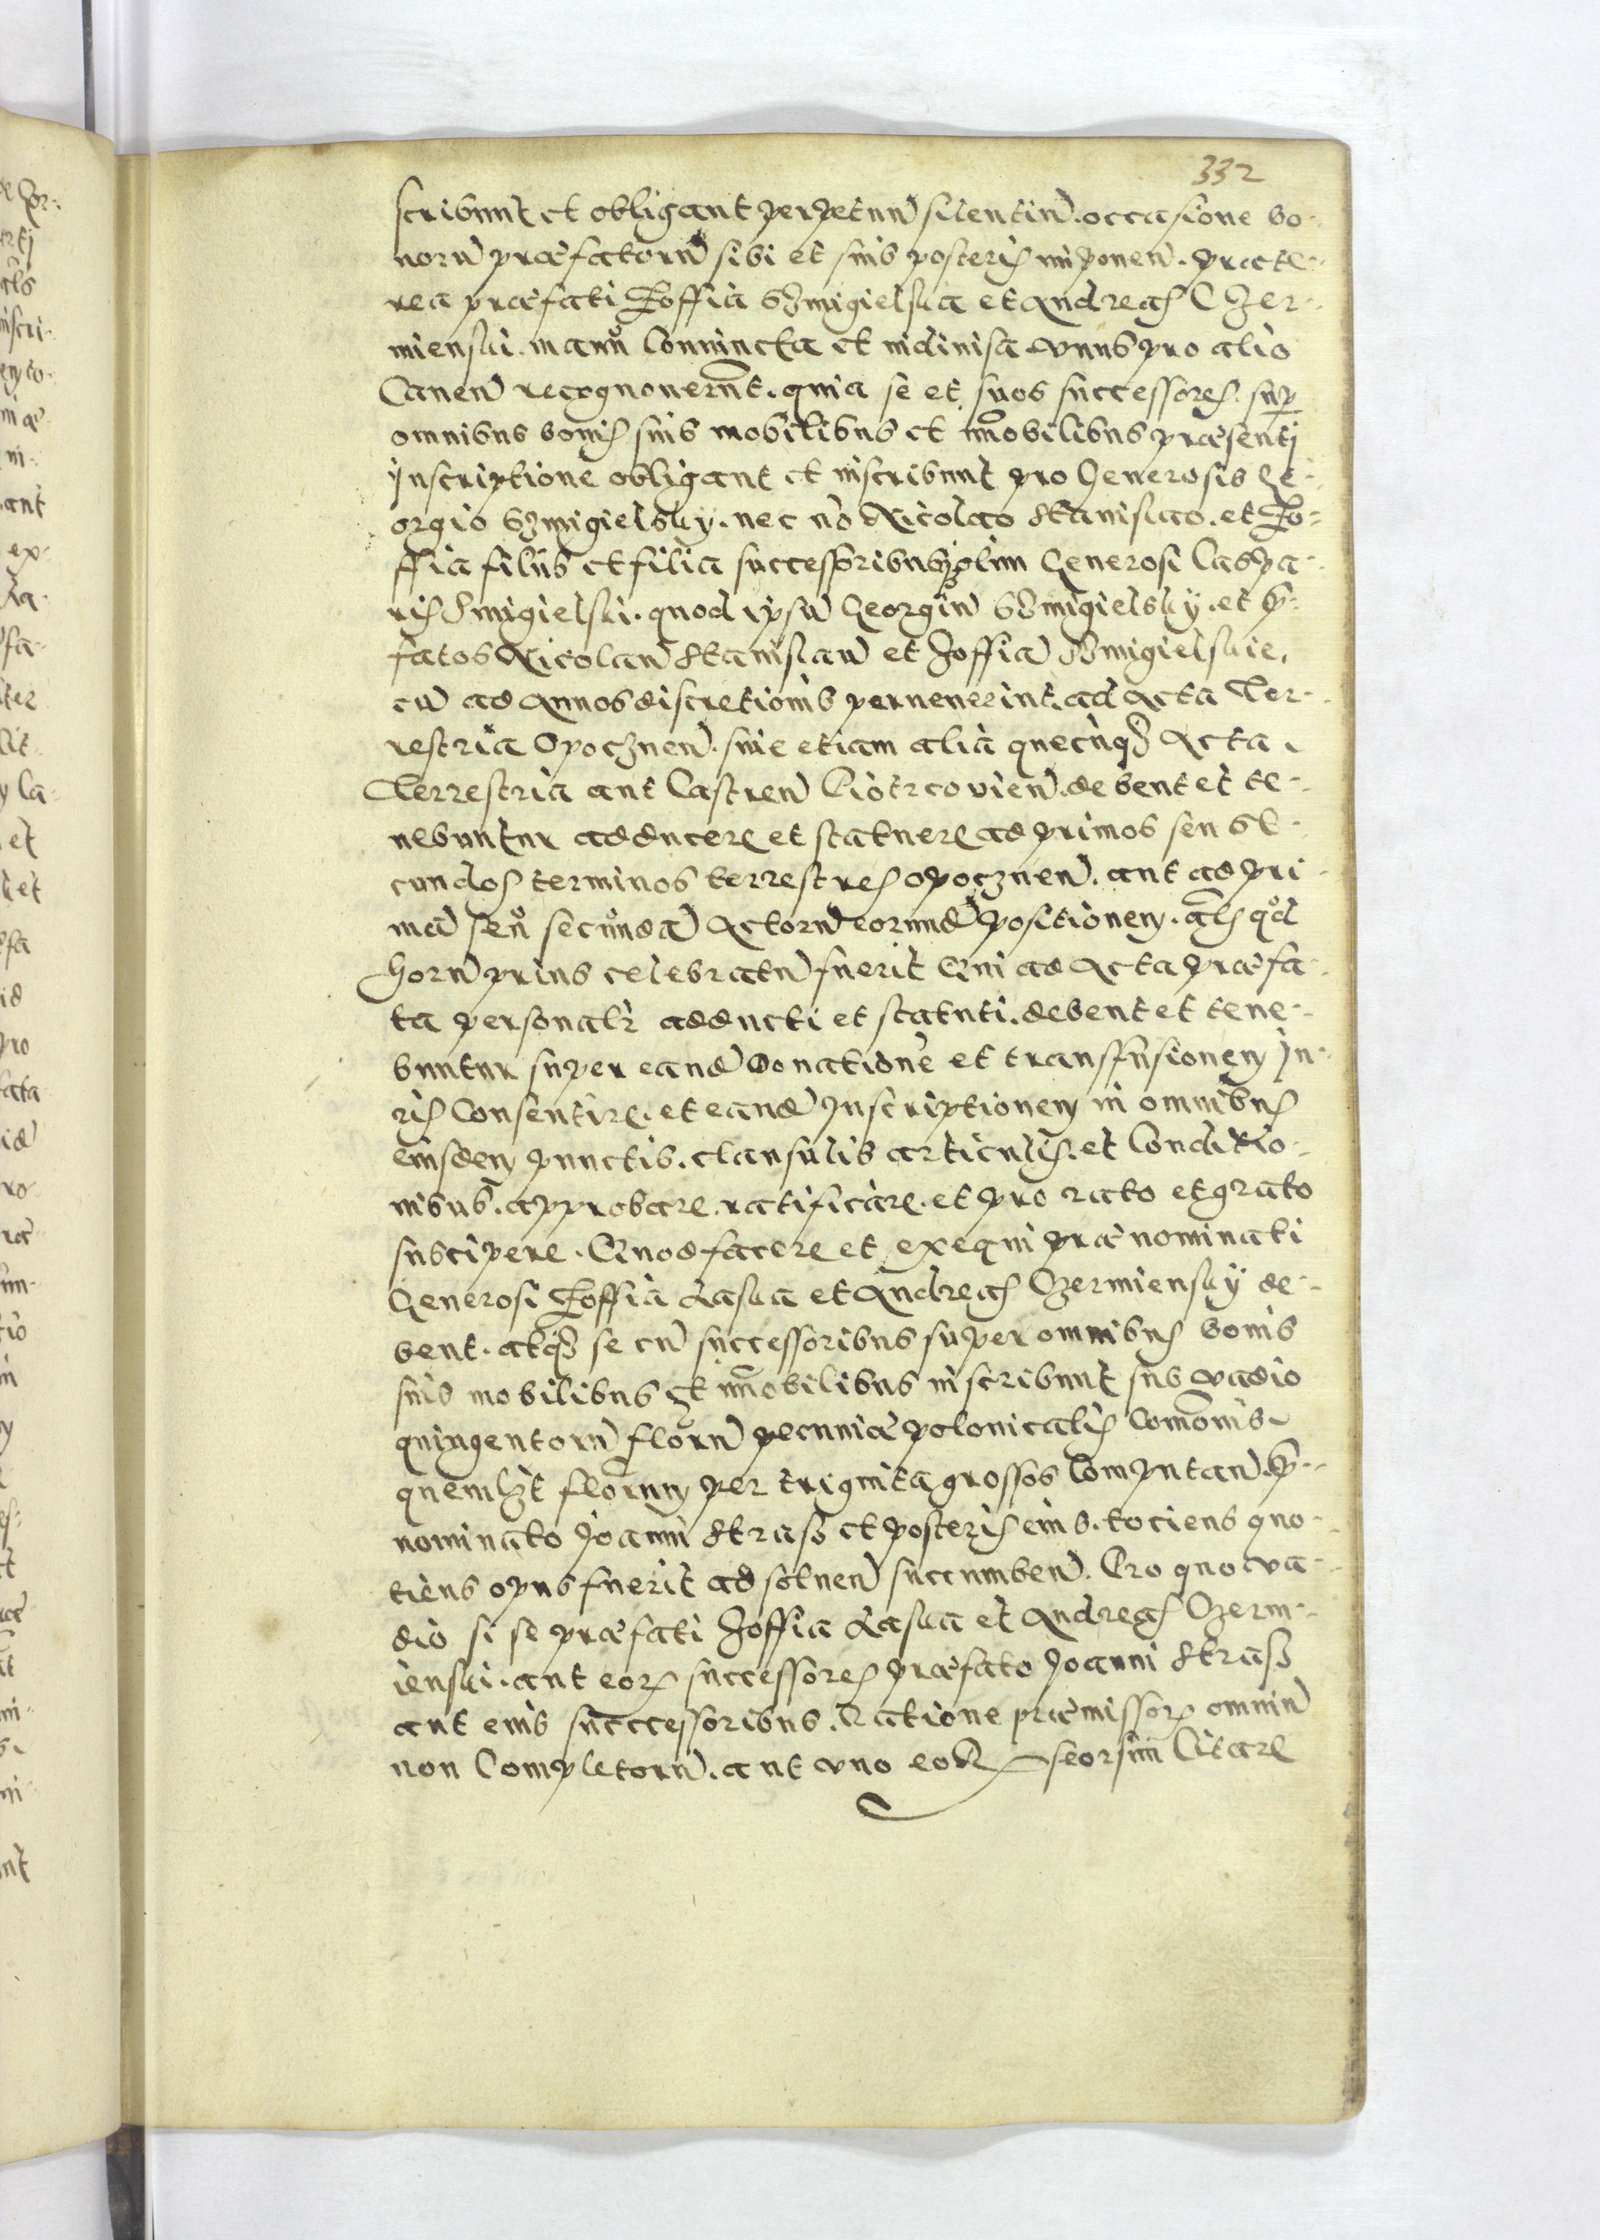 332
scribunt et obligant perpetuu silentiu. occasione bo-
noru præfatoru sibi et suis posteris imponen. præte-
rea præfati Zoffia Szmigielska et Andreas Czer-
mienski. manu Coniuncta et indiuisa vnus pro alio
Cauen recognouerut. quia se et suos successores. sup
omnibus bonis suis mobilibus et imobilibus præsentj
Jnscriptione obligant et inscribunt pro Generosis Ge-
orgio Szmigielsky. nec no Nicolao Stanislao. et Zo-
ffia filiis et filia successoribus olim Generosi Caspa-
ris Smigielski. quod ipsu Georgiu Szmigielsky. et p-
fatos Nicolau Stanislau et Zoffia Szmigielskie.
cu ad Annos discretionis peruenerint. ad Acta Ter-
restria Opocznen. siue etiam alia quecuq3 Acta
Terrestria aut Castren Piotrcouien. debent et te-
nebuntur adducere et statuere ad primos seu se-
cundos terminos terrestres Opocznen. aut ad pri-
ma seu secunda Actoru eorunde positionem. als qd
horu prius celebratu fuerit Qui ad Acta præfa-
ta personalr adducti et statuti. debent et tene-
buntur super eande Donatione et transfusionem Ju-
ris Consentire. et eande Jnscriptionem in omnibus
eiusdem punctis. clausulis articulis. et Conditio-
nibus. approbare. ratificare. et pro rato et grato
suscipere. Quod facere et exequi prænominati
Generosi Zoffia Laska et Andreas Czermiensky de-
bent. atq3 se cu successoribus super omnibus bonis
suis mobilibus et imobilibus inscribunt sub vadio
quingentoru floru pecuniæ polonicalis Comonis
quemlzt florenum per triginta grossos Computan. p-
nominato Joanni Strasz et posteris eius. tociens quo-
tiens opus fuerit ad soluen succumben. Pro quo va-
dio si se præfati Zoffia Laska et Andreas Czerm-
ienski. aut eor successores præfato Joanni Strasz
aut eius successoribus. Ratione præmissor omniu
non Completoru. aut vno eor seorsim Citare